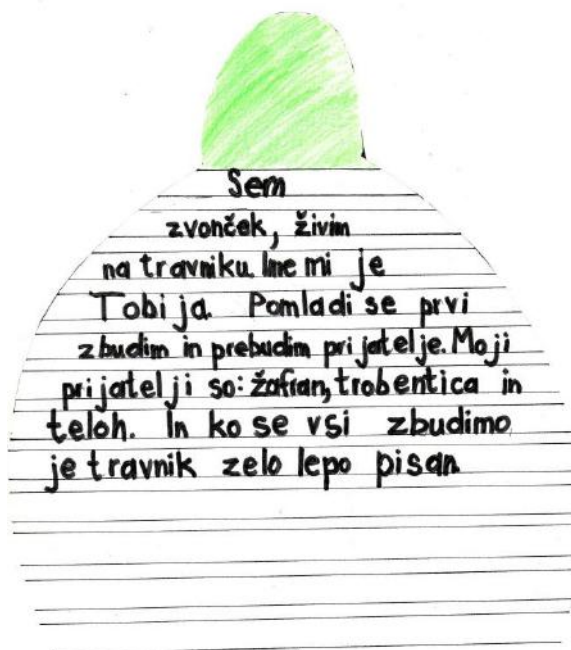 Sem
zvonček, živim
na travniku. Ime mi je
Tobija. Pomladi se prvi
zbudim in prebudim prijatelje. Moji
prijatelji so: žafran, trobentica in
teloh. In ko se vsi zbudimo
je travnik zelo lepo pisan.